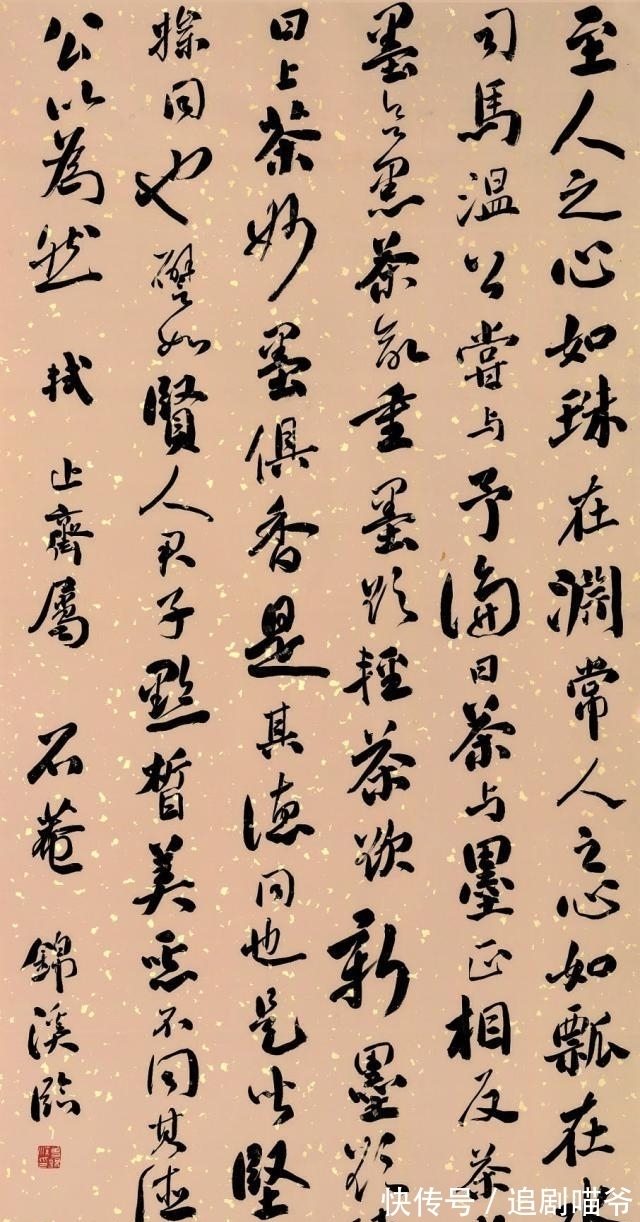 至人之心如珠在淵常人之心如瓢在水
司馬温公嘗与予論曰茶与墨正相反茶
墨欲黑茶欲重墨欲輕茶欲新墨欲
曰上茶妙墨俱香是其德同也是皆堅
操同也譬如賢人君子黔皙美惡不同其德
公以為然 軾 止齋屬 石菴 錦溪臨
快传号 / 追剧喵爷